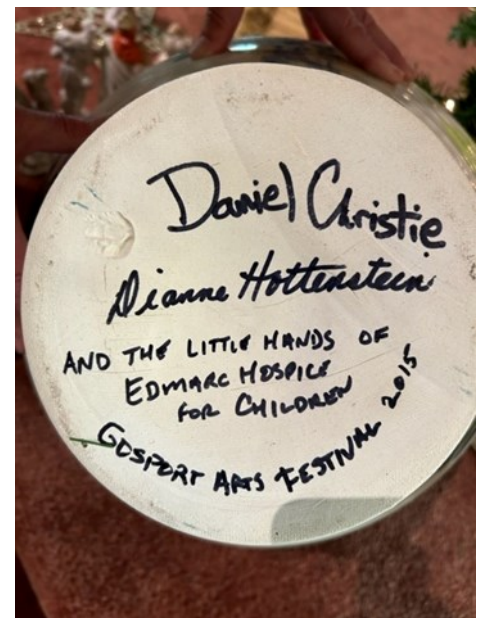 Daniel Christie
Dianne Hottenstein
AND THE LITTLE HANDS OF
EDMARC HOSPICE
FOR CHILDREN
GOSPORT ARTS FESTIVAL 2015